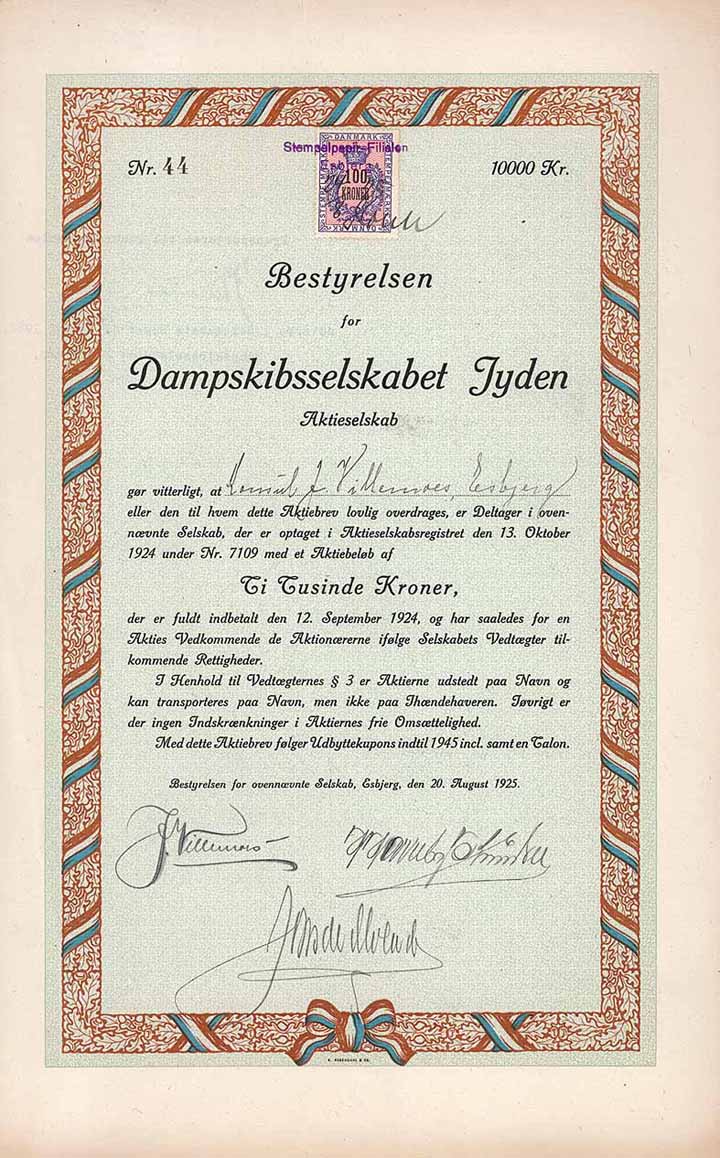 Stempelpapir-Filialen
Esbjerg
DANMARK
100
KRONER
Nr. 44
10000 Kr.
Bestyrelsen
for
Dampskibsselskabet Jyden
Aktieselskab
gør vitterligt, at Konsul J. Villemoes, Esbjerg
eller den til hvem dette Aktiebrev lovlig overdrages, er Deltager i oven-
nævnte Selskab, der er optaget i Aktieselskabsregistret den 13. Oktober
1924 under Nr. 7109 med et Aktiebeløb af
Ti Tusinde Kroner,
der er fuldt indbetalt den 12. September 1924, og har saaledes for en
Akties Vedkommende de Aktionærerne ifølge Selskabets Vedtægter til-
kommende Rettigheder.
I Henhold til Vedtægternes § 3 er Aktierne udstedt paa Navn og
kan transporteres paa Navn, men ikke paa Ihændehaveren. Iøvrigt er
der ingen Indskrænkninger i Aktiernes frie Omsættelighed.
Med dette Aktiebrev følger Udbyttekupons indtil 1945 incl. samt en Talon.
Bestyrelsen for ovennævnte Selskab, Esbjerg, den 20. August 1925.
J. Villemoes